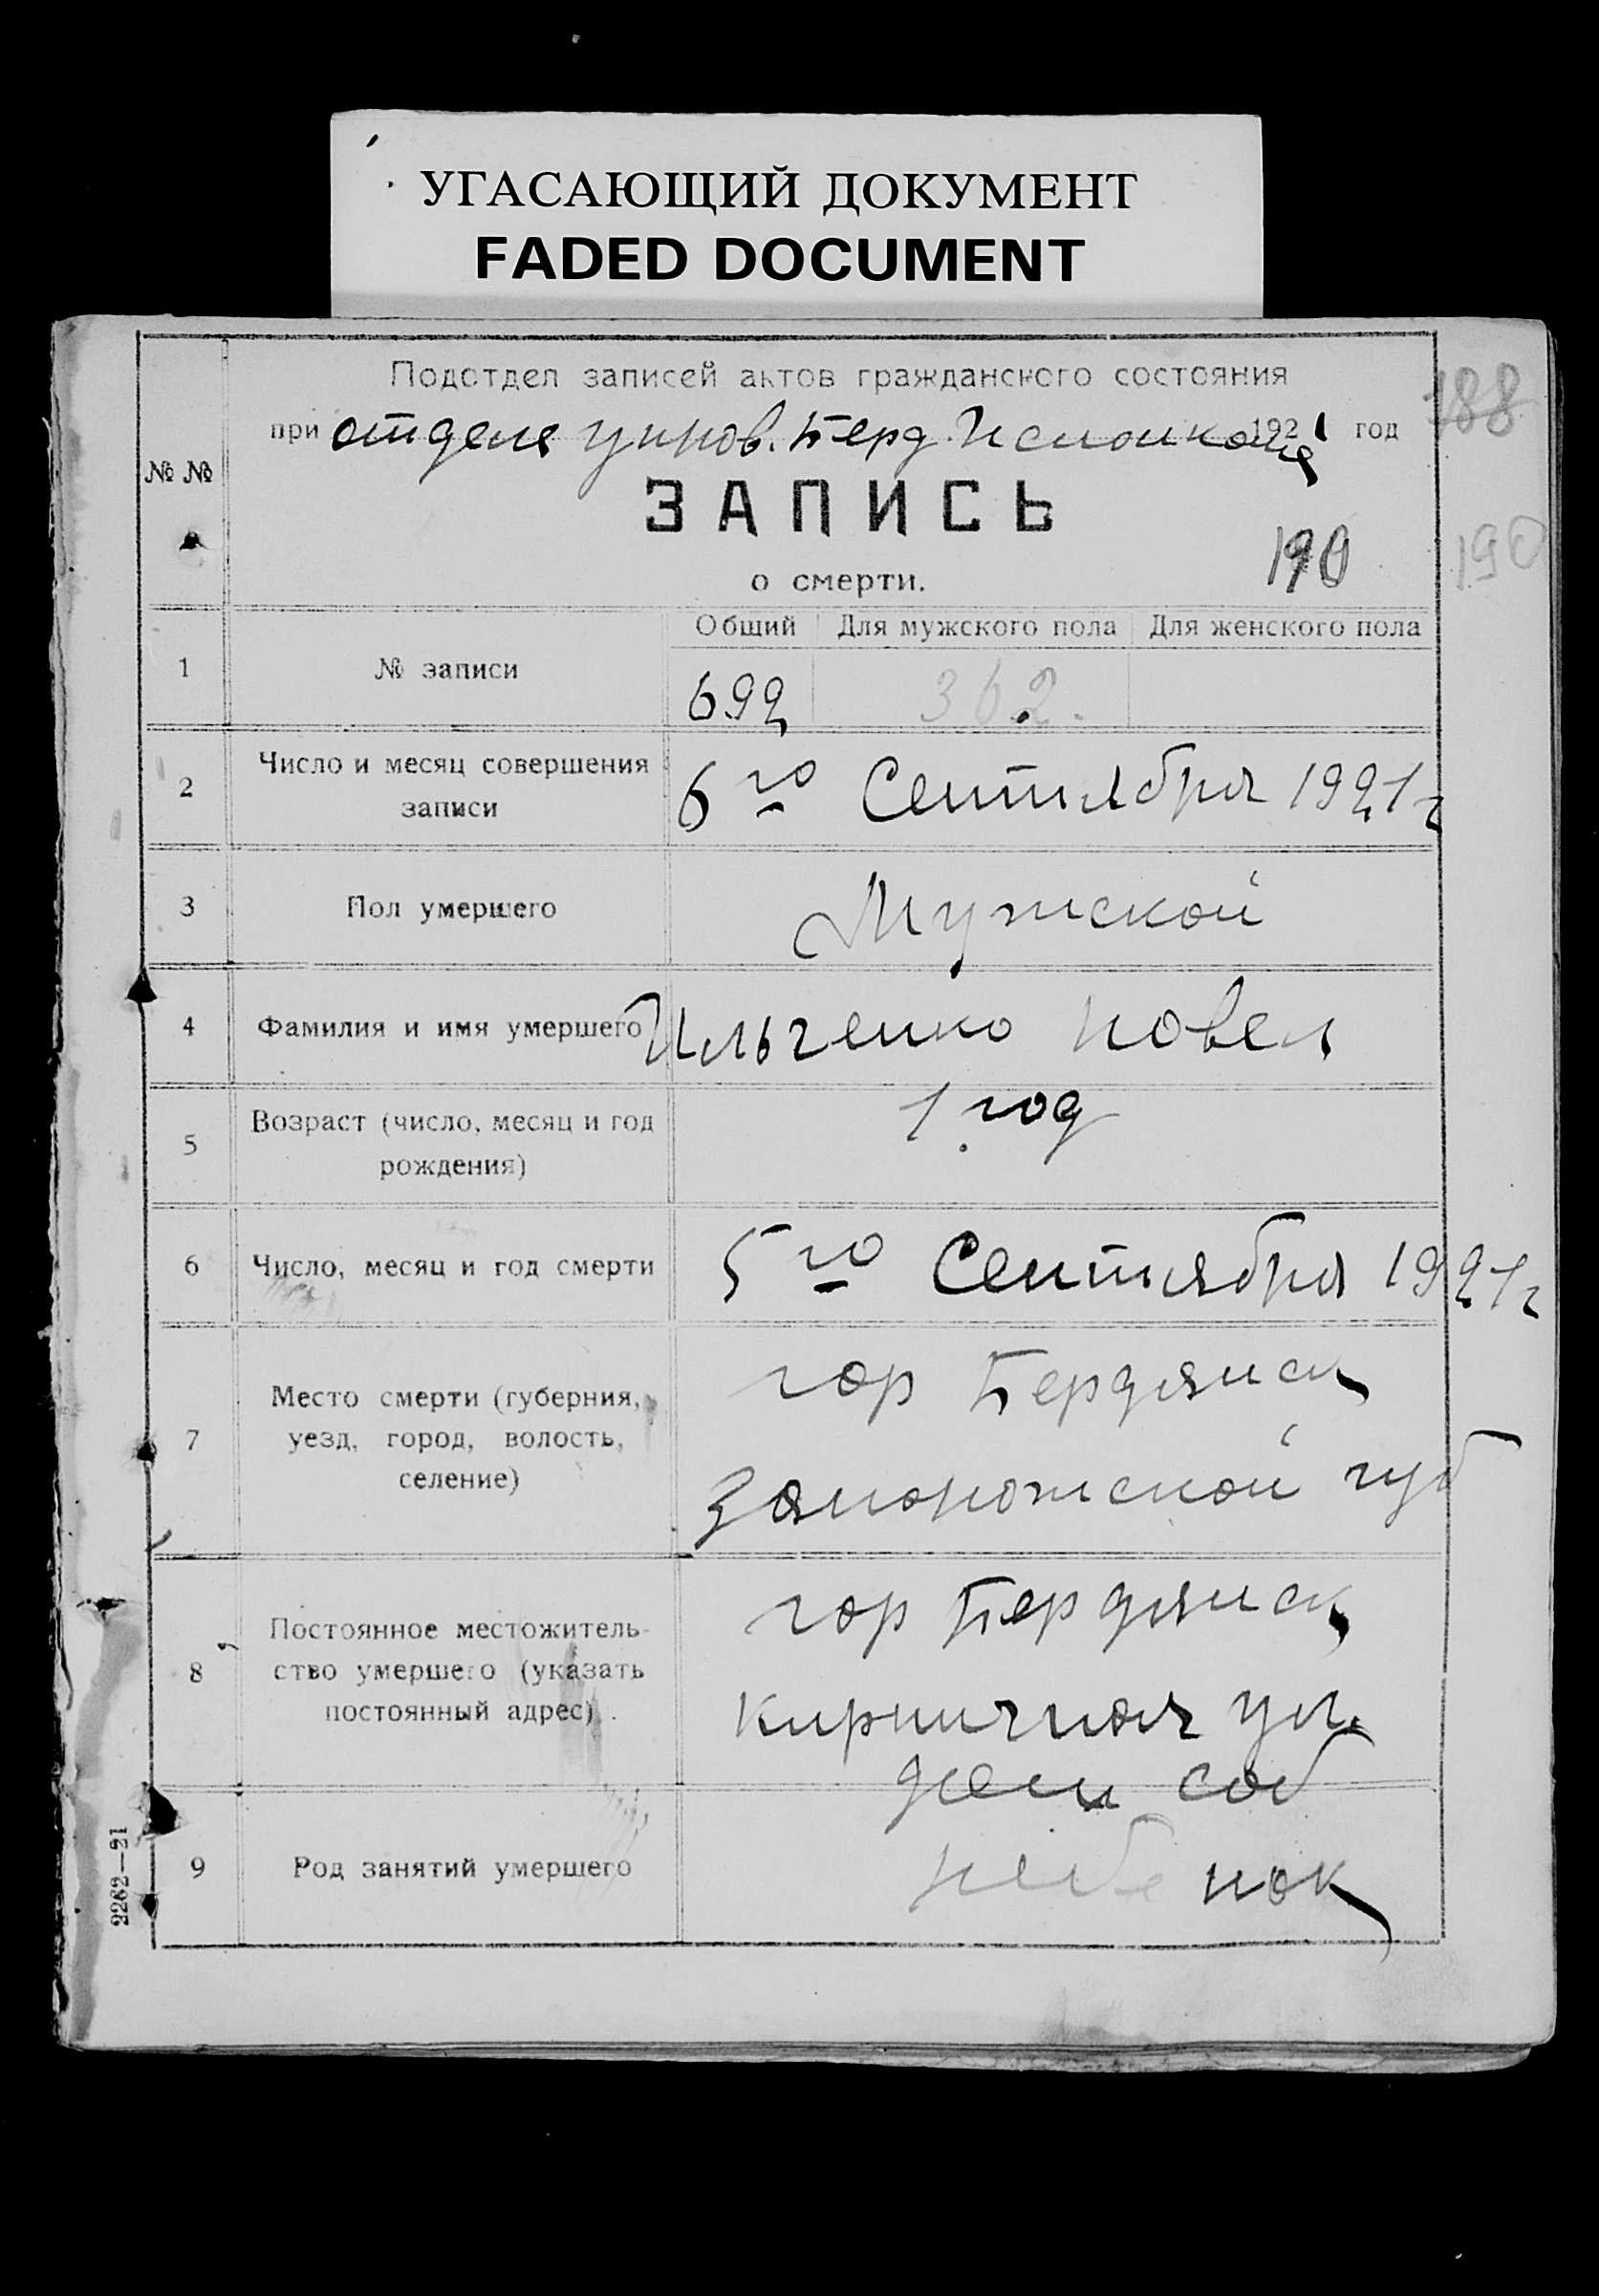 УГАСАЮЩИЙ ДОКУМЕНТ
FADED DOCUMENT
Подотдел записей актов гражданского состояния
при отделе управ. Берд. Исполкома 1921 год
188
№ №
ЗАПИСЬ
о смерти.
190
190
Общий Для мужского пола Для женского пола
1 № записи 692 362.
2 Число и месяц совершения
записи
6го Сентября 1921 г
3 Пол умершего Мужской
4 Фамилия и имя умершего Ильченко Повел
5 Возраст (число, месяц и год
рождения)
1 год
6 Число, месяц и год смерти 5го Сентября 1921 г
7 Место смерти (губерния,
уезд, город, волость,
селение)
гор Бердянск
Запорожской губ
8 Постоянное местожитель-
ство умершего (указать
постоянный адрес).
гор Бердянск
Кирпичная ул.
дом соб
9 Род занятий умершего ребенок
2262—21